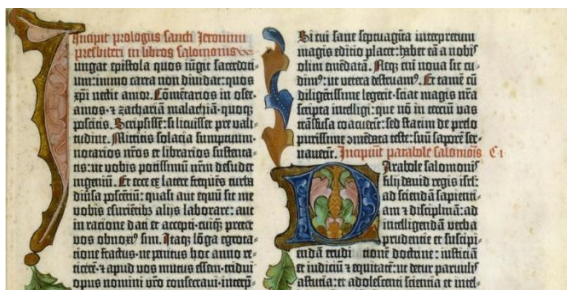 Incipit prologus sancti Jeronimi
presbiteri in libros salomonis
Iungat epistola quos iūgit sacerdo-
tiū: immo carta non dividat: quos
xpi nectit amor. Cōmētarios in osee.
amos. ⁊ zachariā malachiā. quoqꝫ
poscitis. Scripsissē: si licuisset pre vali-
tudine. Mittitis solacia sumptuum.
notarios nr̄os et librarios sustenta-
tis: ut vobis potissimū nr̄m desudet
ingeniū. Et ecce ex latere frequēs turba
diūsa poscētiū: quasi aut equū sit me
vobis esuriētibꝰ alijs laborare: aut
in ratione dati et accepti. cuiqꝫ preter
vos obnoxiꝰ sim. Itaqꝫ lōga egrota-
tione fractus. ne penitus hoc anno re-
ticerē. ⁊ apud vos mutus essem. tridui
opus nomini vr̄o consecraui. interp̄-
Si cui sane septuaginta interpretum
magis editio placet: habet eā a nobis
olim emēdatā. Neqꝫ eni noua sic cu-
dimꝰ: ut vetera destruamꝰ. Et tamē cū
diligētissime legerit. sciat magis nr̄a
scripta intelligi: que nō in terciū vas
trāsfusa coacuerīt: sed statim de prelo
purissime cōmēdata teste: suū saporē ser-
uauerīt. Incipiūt parabole salomōis C i
Parabole salomonis
filij dauid regis isrl̄:
ad sciendā sapienti-
am ⁊ disciplinā: ad
intelligendā verba
prudentie et suscipi-
endā eruditionē doctrine: iusticiā
et iudiciū ⁊ equitatē: ut detur paruulis
astutia: et adolescenti scientia et intel-